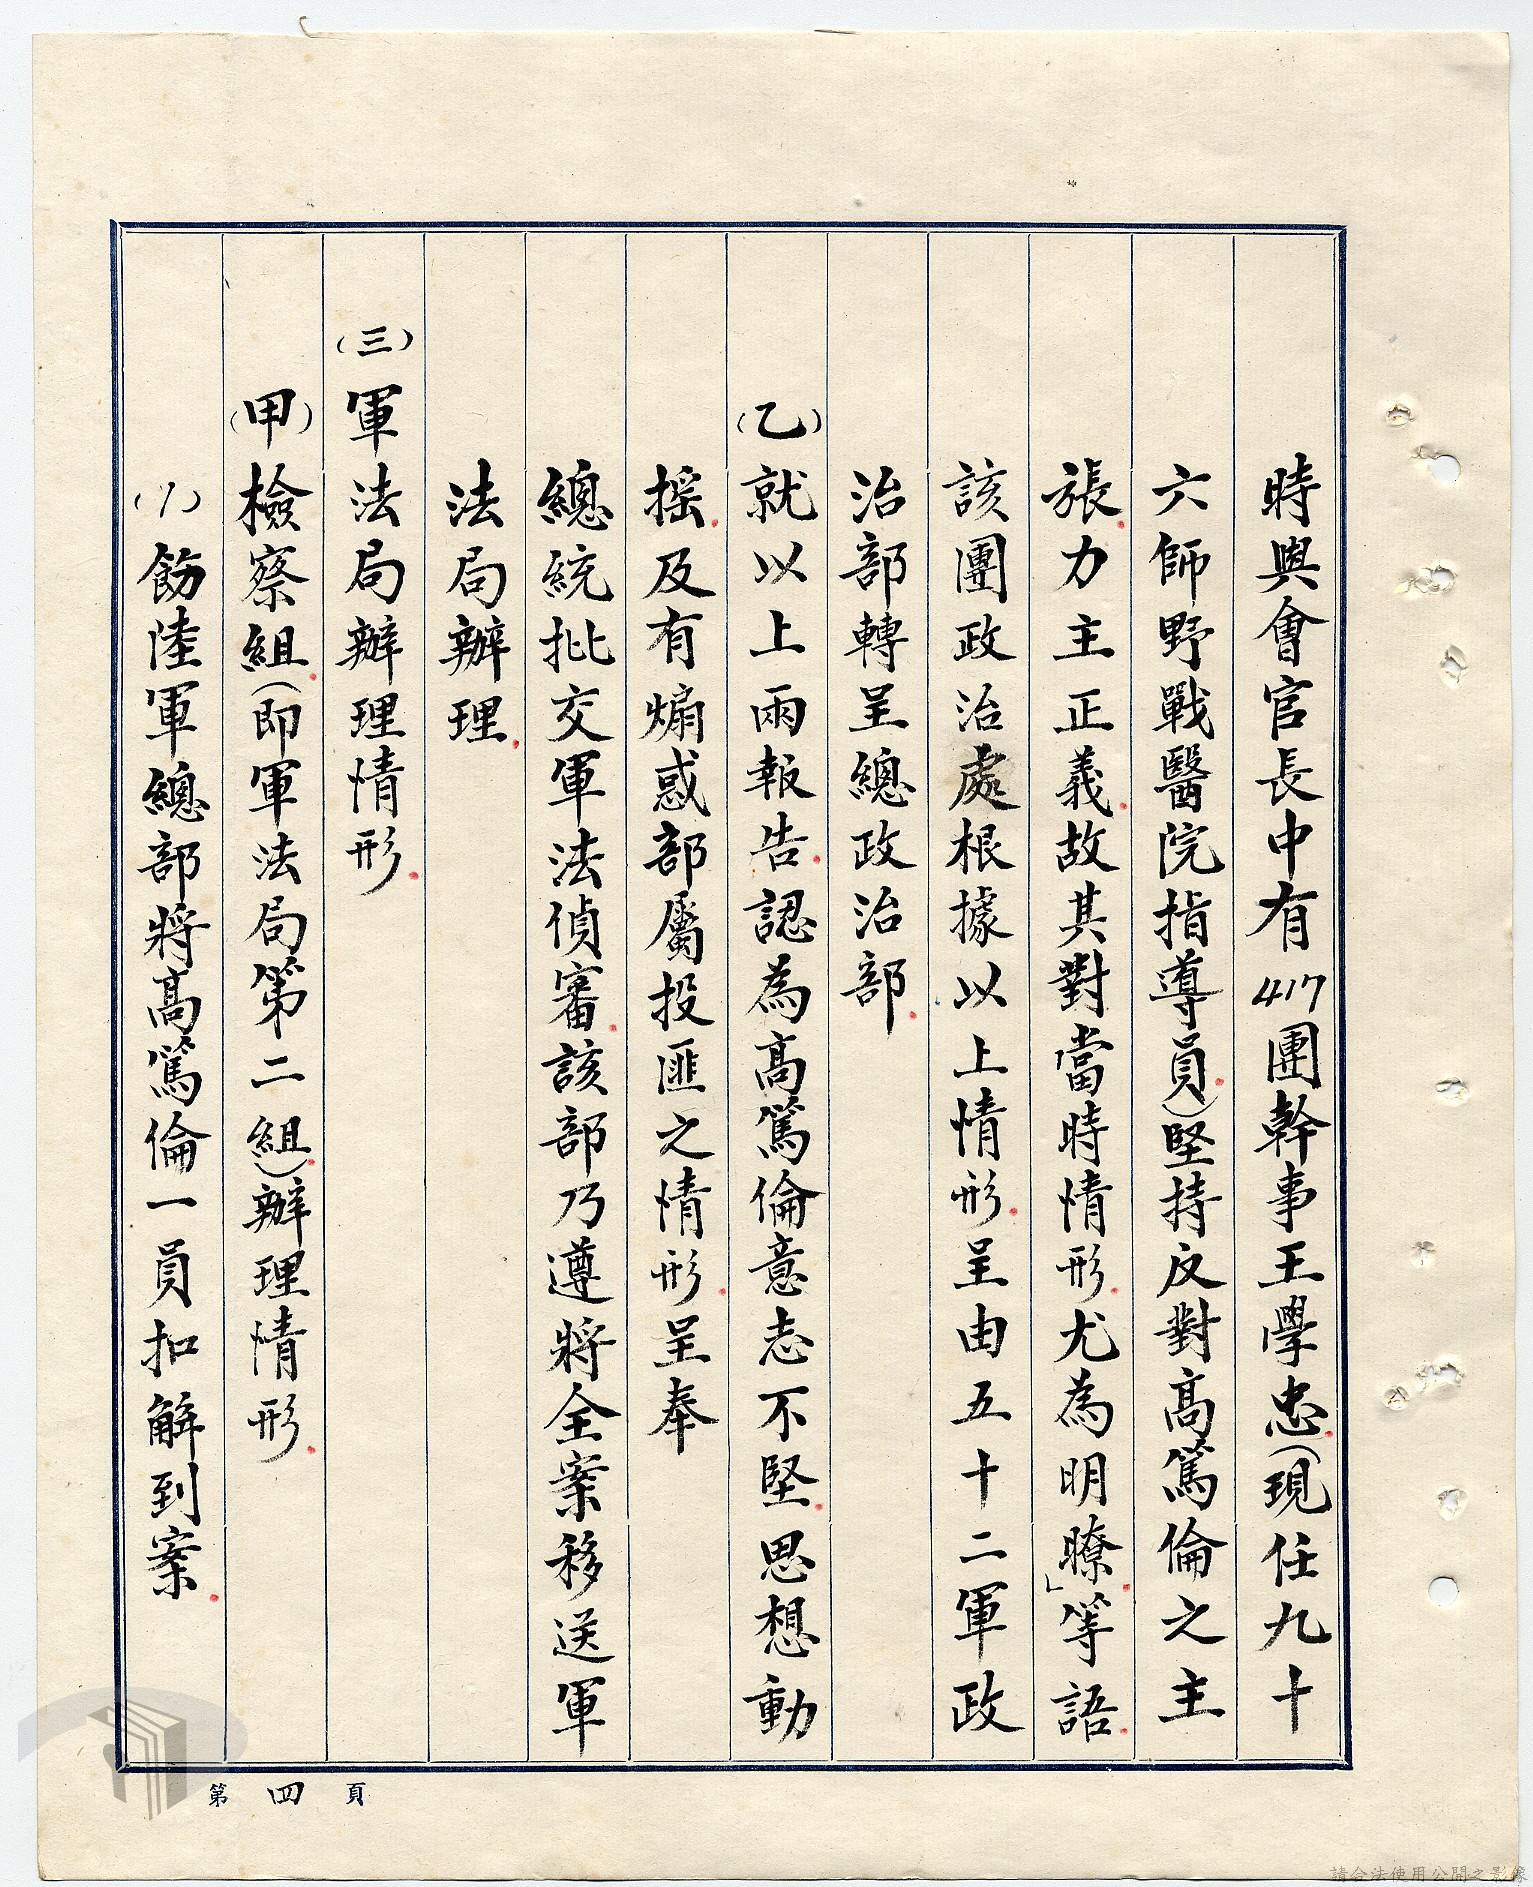 時與會官長中有417團幹事王學忠(現任九十
六師野戰醫院指導員)堅持反對高篤倫之主
張力主正義故其對當時情形尤為明瞭」等語
該團政治處根據以上情形呈由五十二軍政
治部轉呈總政治部
(乙)就以上兩報告認為高篤倫意志不堅思想動
搖及有煽惑部屬投匪之情形呈奉
總統批交軍法偵審該部乃遵將全案移送軍
法局辦理
(三)軍法局辦理情形
(甲)檢察組(即軍法局第二組)辦理情形
(1)飭陸軍總部將高篤倫一員扣解到案
第四頁
請合法使用公開之影像